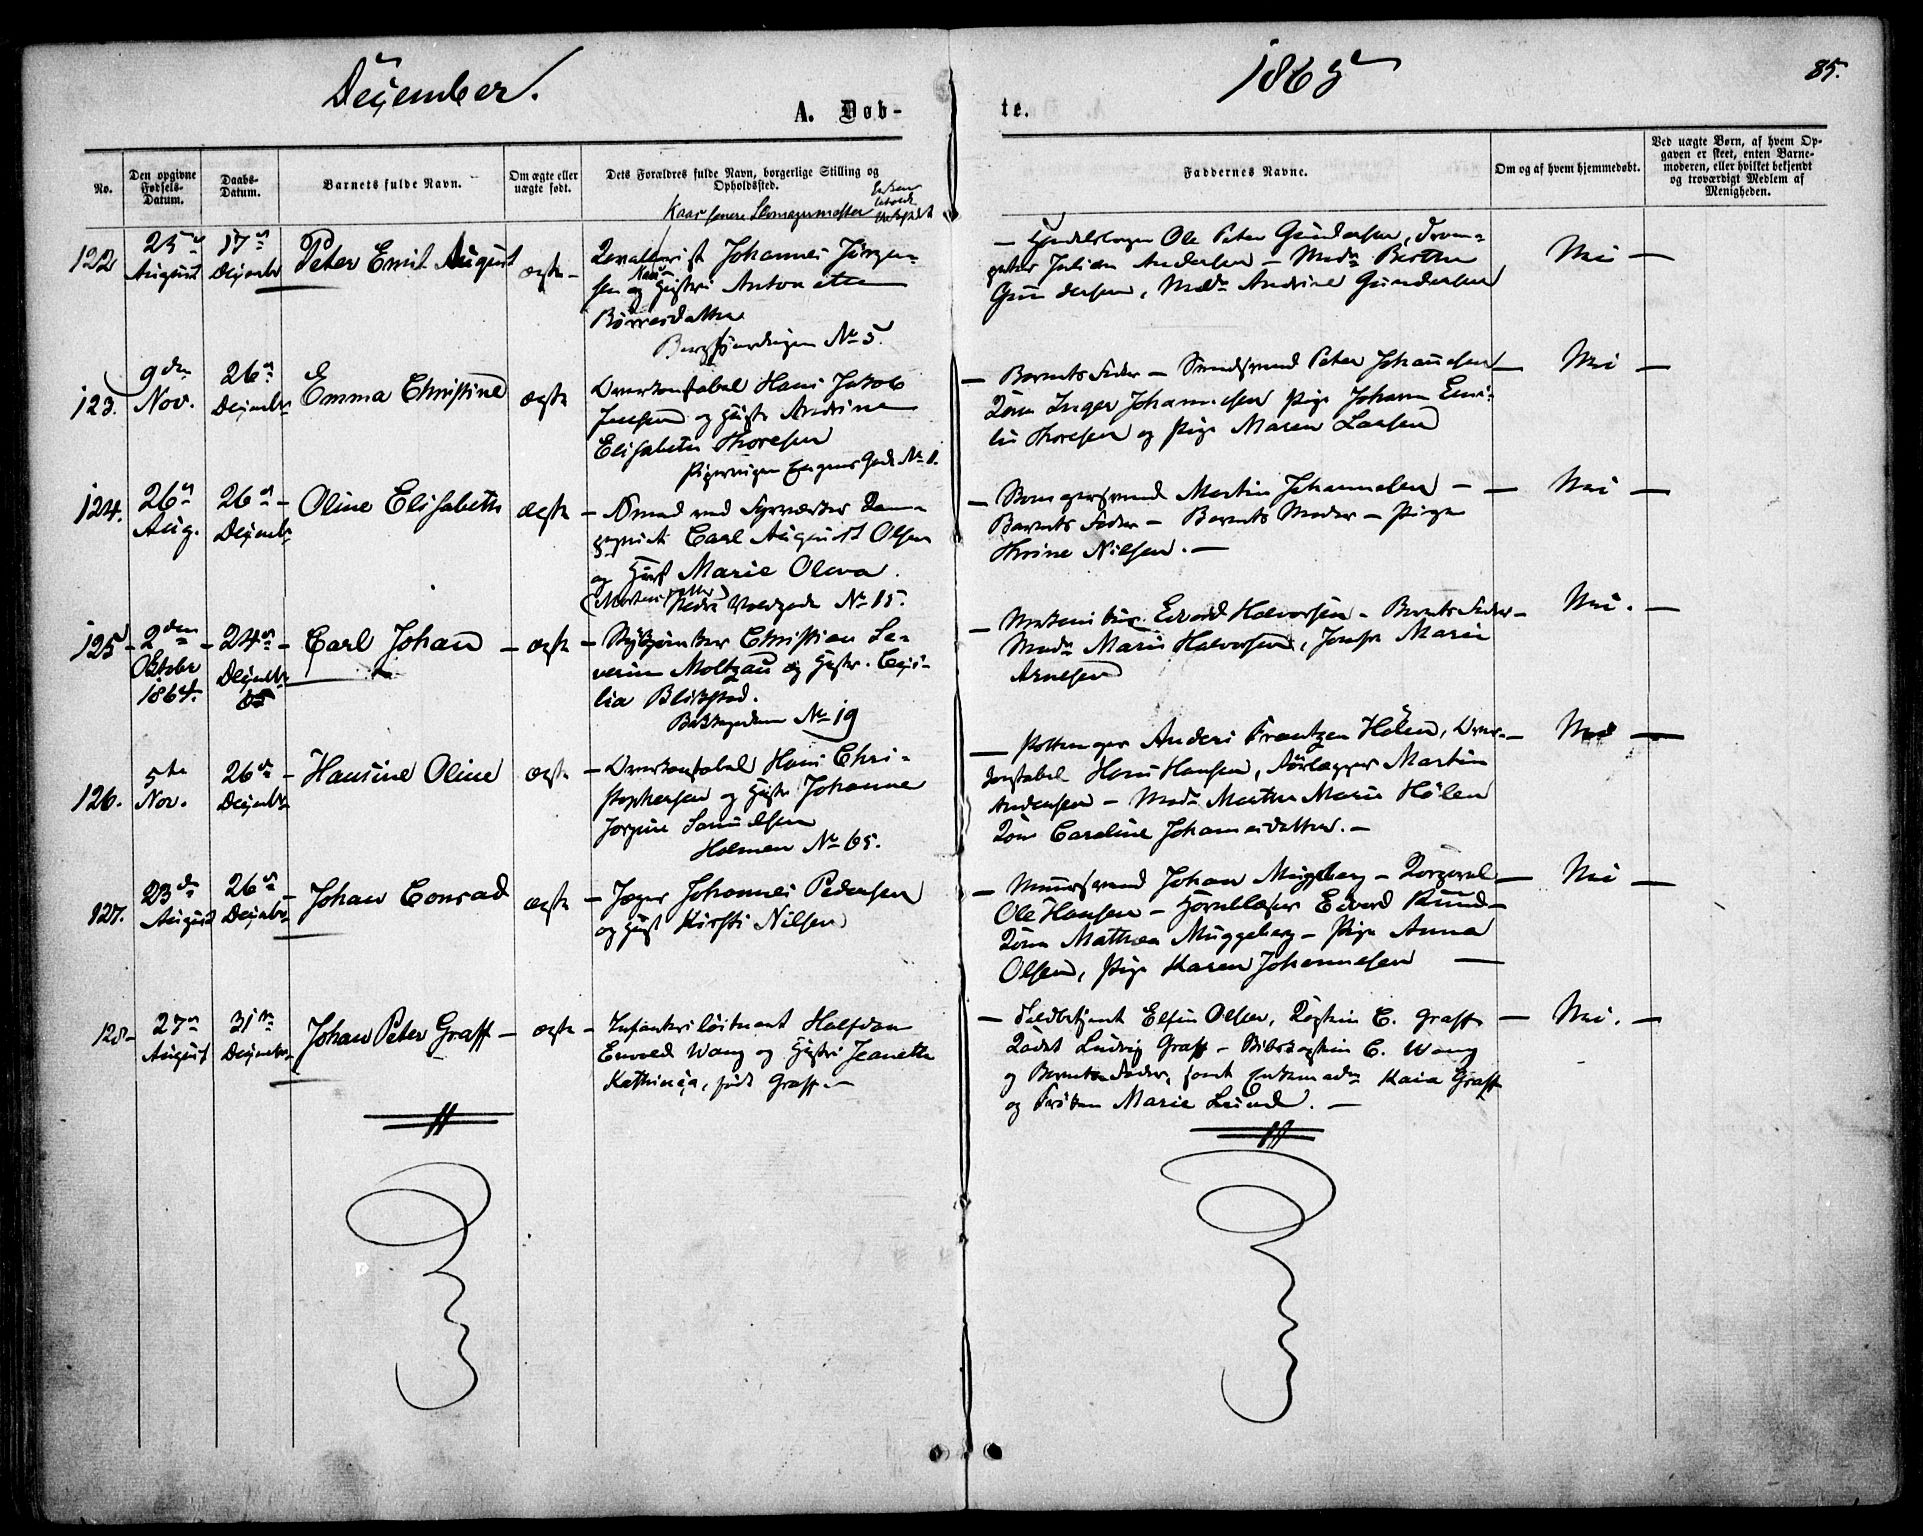 December.
1865
85.
A. Døb-
te.
No.
Den opgivne
Fødsels-
Datum.
Daabs-
Datum.
Barnets fulde Navn.
Om ægte eller
uægte født.
Dets Forældres fulde Navn, borgerlige Stilling og
Opholdssted.
Faddernes Navne.
Om og af hvem hjemmedøbt.
Ved uægte Børn, af hvem Op-
gaven er skeet, enten Barne-
moderen, eller hvilket bekjendt
og troværdigt Medlem af
Menigheden.
122
25
August
17
Decembr
Peter Emil August
ægte -
Johannes Jørgen-
sen og Hustru Antonette
Børresdatter
No 5.
Ole Peter Gundersen,
Julius Andersen - Mad. Berthe
Gundersen, Mad. Andrine Gundersen
Nei -
123.
9de
Nov.
26
Decembr
Emma Christine
ægte
Overkonstabel Hans Jakob
Jensen og Hustr Andrine
Elisabeth Thoresen
No 11.
- Barnets Fader - Peter Johannesen -
Kone Inger Johannesen Pige Johanne Emi-
lie Thoresen og Pige Maren Larsen
Nei -
124.
26
Aug.
26 -
Decembr
Oline Elisabeth
ægte
- Smed ved Fyrværker Kom-
pagniet Carl August Olsen
og Hust Marie Olava.
Nedre Voldgade No 15.
- Martin Johannesen -
Barnets Fader - Barnets Moder - Pige
Thrine Nilsen. -
Nei -
125 -
2den
Oktobr
1864.
24
Decembr
65
Carl Johan
- ægte
- Christian Se-
verin Moltzau og Hustr. Ceci-
lia Blikstad.
Bakkegaden No 19
- Edvard Halvorsen - Barnets Fader -
Mad. Marie Halvorsen, Jomfr Marie
Arnesen
Nei. -
126.
5te
Nov.
26
Decembr
- Hansine Oline
ægte
- Overkonstabel Hans Chri-
stophersen og Hustr Johanne
Jorgine Samuelsen
Holmen No 65.
- Anders Frantzen Hølen, Over-
konstabel Hans Hansen, Martin
Andersen - Mad. Marthe Marie Hølen
Kone Caroline Johannesdatter. -
Nei -
127.
23de
August
26
Decembr
- Johan Conrad
ægte
- Jæger Johannes Pedersen
og Hust Kirsti Nilsen
- Muursvend Johan Muggeberg - Korporal
Ole Hansen - Hornblæser Edvard Knud-
Kone Mathea Muggeberg - Pige Anna
Olsen, Pige Karen Johannesen -
Nei -
128 -
27
August
31te
Decembr
Johan Peter Graff -
ægte
- Infanteriløitnant Halfdan
Enevold Wang og Hustru Jeanette
Kathinca, født Graff. -
- Toldbetjent Elsin Olsen, Kaptein C. Graff -
Kadet Ludvig Graff - C. Wang
og Barnets Fader, samt Enkemadm Kaia Graff
og Frøken Marie Lund. -
Nei. -